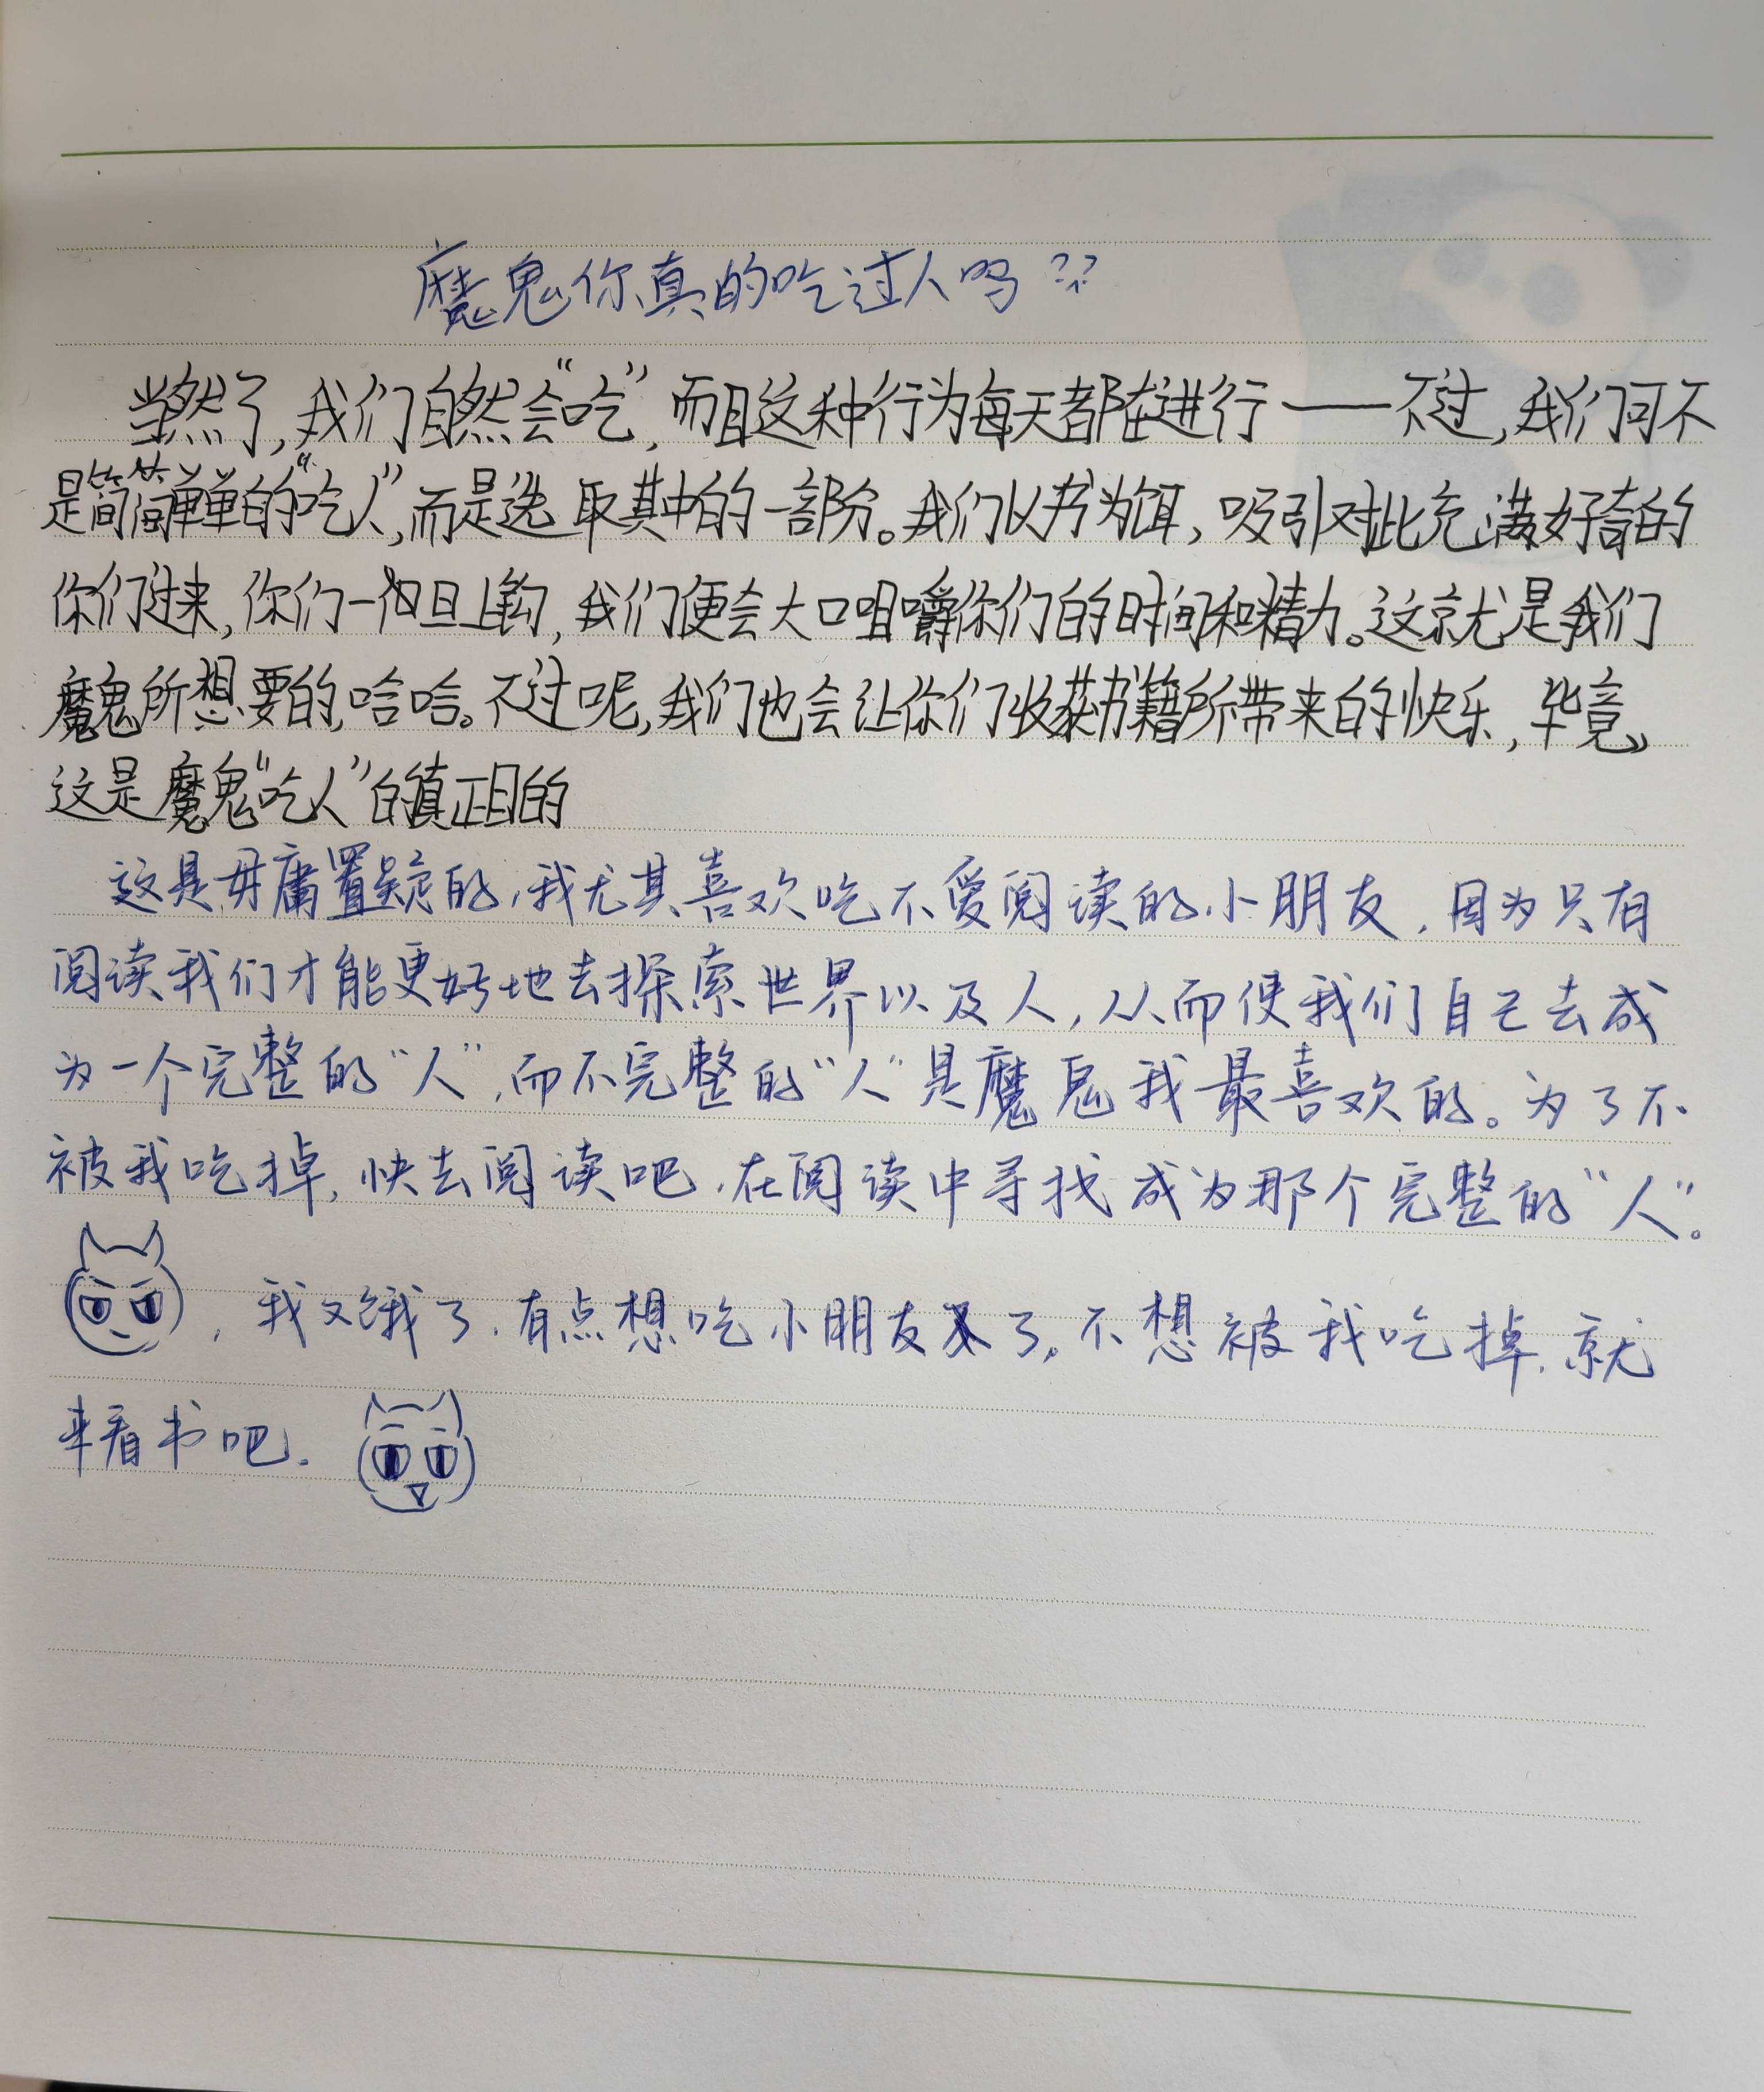 魔鬼你真的吃过人吗??
当然了,我们自然会“吃”,而且这种行为每天都在进行——不过,我们可不
是简简单单的“吃人”,而是选取其中的一部分。我们以书为饵,吸引对此充满好奇的
你们过来,你们一但上钩,我们便会大口咀嚼你们的时间和精力。这就是我们
魔鬼所想要的,哈哈。不过呢,我们也会让你们收获书籍所带来的快乐,毕竟,
这是魔鬼“吃人”的真正目的
这是毋庸置疑的,我尤其喜欢吃不爱阅读的小朋友,因为只有
阅读我们才能更好地去探索世界以及人,从而使我们自己去成
为一个完整的“人”,而不完整的“人”是魔鬼我最喜欢的。为了不
被我吃掉,快去阅读吧,在阅读中寻找成为那个完整的“人”。
,我又饿了,有点想吃小朋友了,不想被我吃掉,就
来看书吧.